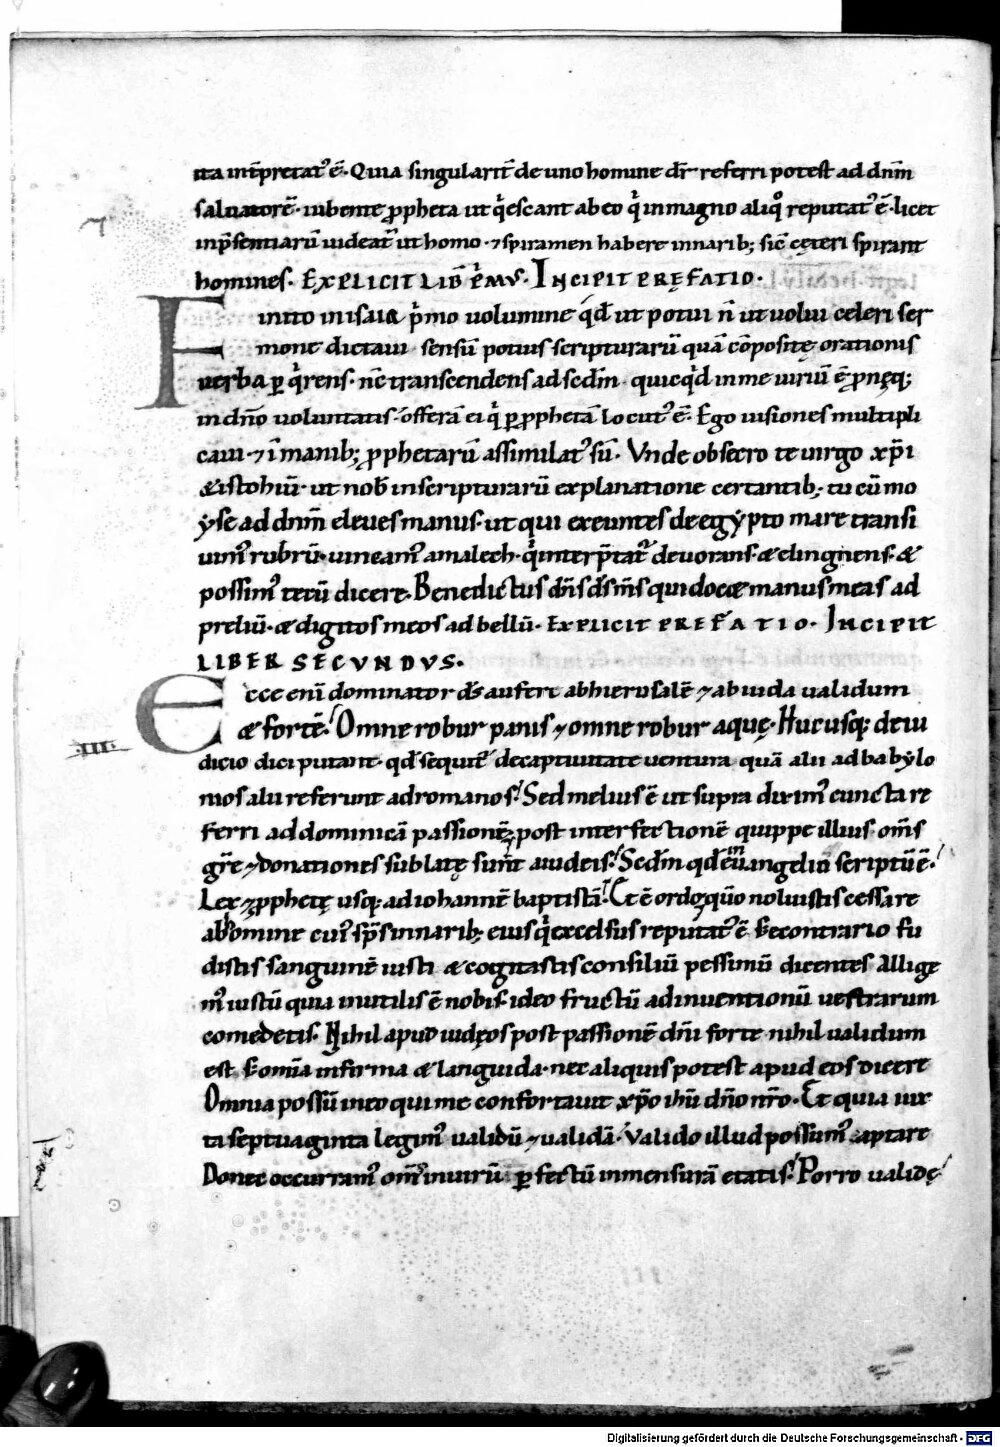 ita int̄pretat᷒ ē. Quia singularit̄ de uno homine dr̄ referri potest ad dn̄m
saluatorē. iubente ꝓpheta ut q̇escant ab eo q̇ in magno aliq̊ reputat᷒ ē. licet
inp̄sentiarū uideat᷒ ut homo. ⁊ spiramen habere in narib; sic̄ cęteri spirant
homines. EXPLICIT LIB̄ P̍MVS. INCIPIT PREFATIO.
Finito in isaia p̍mo uolumine qd̄ ut potui n̄ ut uolui celeri ser
mone dictaui sensū potius scripturarū quā cōpositę orationis
uerba ꝑq̍rens. nc̄ transcendens ad scd̄m quicq̍d in me uiriū ē ꝓnęq;
in dn̄o uoluntatis. offerā ei q̍ ꝑ ꝓphetā locut᷒ ē. Ego uisiones multipli
caui. ⁊ ī manib; ꝓphetarū assimilat᷒ sū. Vnde obsecro te uirgo xp̄i
&istohiū. ut nob̄ in scripturarū explanatione certantib; tu cū mo
yse ad dn̄m eleues manus. ut qui exeuntes de egypto mare transi
uim᷒ rubrū. uincam᷒ amalech. q̍ interp̄tat᷒ deuorans. & elingnens. &
possim᷒ tecū dicere. Benedictus dn̄s ds̄ ms̄ qui doc& manus meas ad
preliū. & digitos meos ad bellū. EXPLICIT PREFATIO. INCIPIT
LIBER SECVNDVS.
Ecce enī dominator ds̄ aufert ab hierusalē ⁊ ab iuda ualidum
.III.
& fortē. Omne robur panis ⁊ omne robur aquę. Hucusq; de iu
dicio dici putant. qd̄ sequit᷒ de captiuitate uentura quā alii ad babylo
nios alii referunt ad romanos. Sed melius ē ut supra dixim᷒ cuncta re
ferri ad dominicā passionē. post interfectionē quippe illius om̄s
gr̄e ⁊ donationes sublatę sunt a iudeis. Sed in euangelio scriptū ē.
Lex ⁊ ꝓphetę usq; ad iohannē baptistā. Et ē ordo. quō noluistis cessare
ab homine cui᷒ sp̄s in narib; eius q̍ excelsus reputat᷒ ē s; econtrario fu
distis sanguinē iusti & cogitastis consiliū pessimū dicentes Allige
m᷒ iustū quia inutilis ē nobis. ideo fructū adinuentionū uestrarum
comedetis. Nihil apud iudęos post passionē dn̄i forte nihil ualidum
est. s; om̄ia infirma & languida. nec aliquis potest apud eos dicere
Omnia possū in eo qui me confortauit xp̄o ihū dn̄o nr̄o. Et quia iux
ta septuaginta legim᷒ ualidū ⁊ ualidā. Valido illud possum᷒ aptare
Donec occurram᷒ om̄s in uirū ꝑfectū in mensurā etatis. Porro ualidę
Digitalisierung gefördert durch die Deutsche Forschungsgemeinschaft - DFG